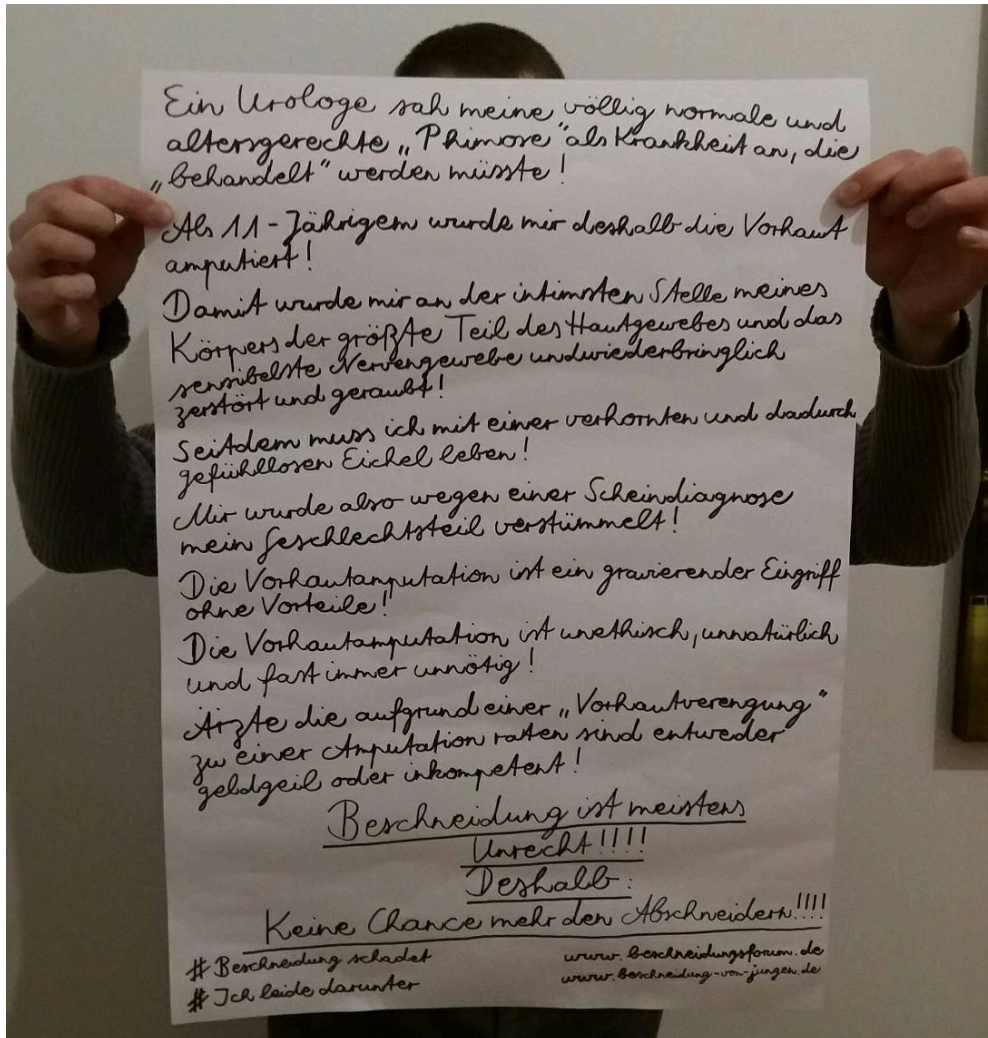 Ein Urologe sah meine völlig normale und
altersgerechte „Phimose" als Krankheit an, die
„behandelt" werden müsste!
Als 11-Jährigem wurde mir deshalb die Vorhaut
amputiert!
Damit wurde mir an der intimsten Stelle meines
Körpers der größte Teil des Hautgewebes und das
sensibelste Nervengewebe undwiederbringlich
zerstört und geraubt!
Seitdem muss ich mit einer verhornten und dadurch
gefühllosen Eichel leben!
Mir wurde also wegen einer Scheindiagnose
mein Geschlechtsteil verstümmelt!
Die Vorhautamputation ist ein gravierender Eingriff
ohne Vorteile!
Die Vorhautamputation ist unethisch, unnatürlich
und fast immer unnötig!
Ärzte die aufgrund einer „Vorhautverengung"
zu einer Amputation raten sind entweder
geldgeil oder inkompetent!
Beschneidung ist meistens
Unrecht!!!!
Deshalb:
Keine Chance mehr den Abschneidern!!!!
# Beschneidung schadet
# Ich leide darunter
www.beschneidungsforum.de
www.beschneidung-von-jungen.de